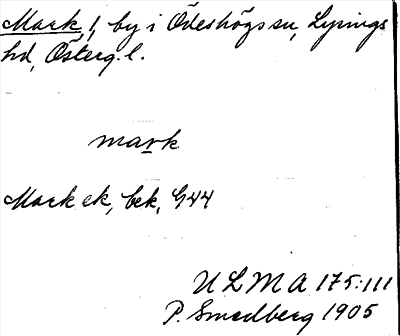 Mark, 1, by i Ödeshögs sn, Lysings
hd, Österg. l.
mark
Mark ek, bek, G44
ULMA 175:111
P. Smedberg 1905